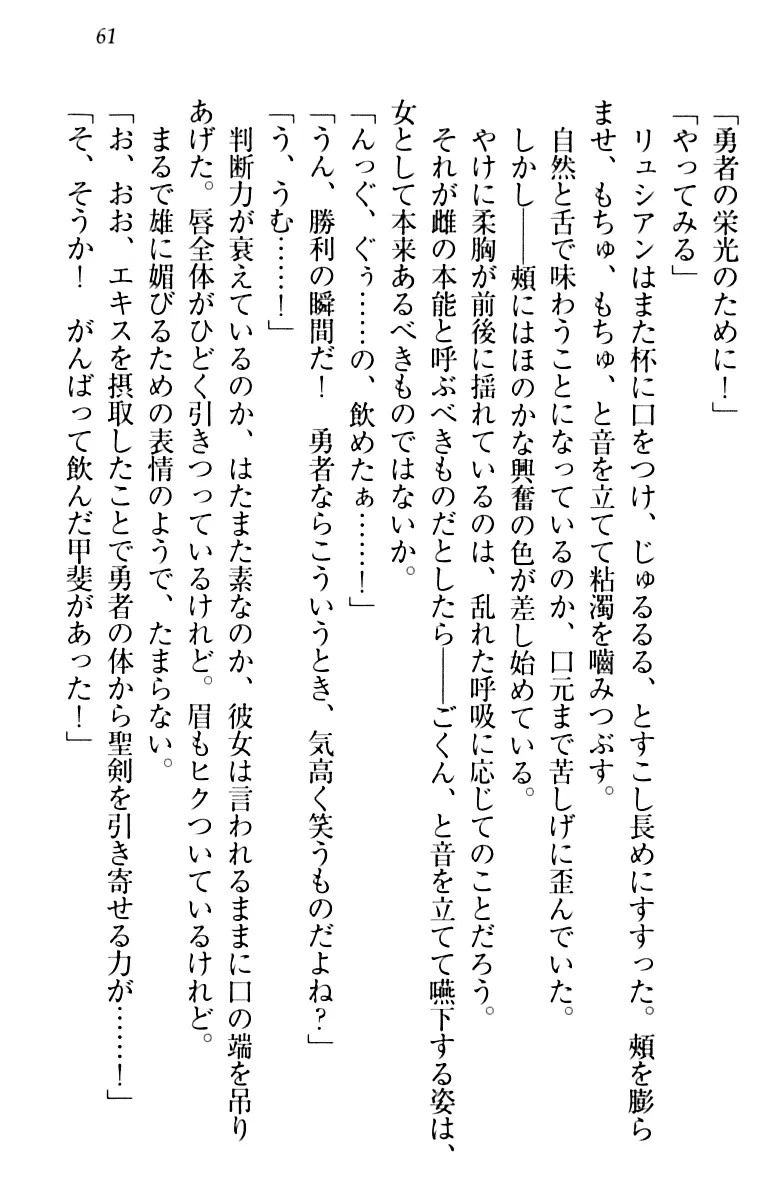 61
「勇者の栄光のために！」
「やってみる」
　リュシアンはまた杯に口をつけ、じゅるるる、とすこし長めにすすった。頰を膨ら
ませ、もちゅ、もちゅ、と音を立てて粘濁を嚙みつぶす。
　自然と舌で味わうことになっているのか、口元まで苦しげに歪んでいた。
　しかし――頰にはほのかな興奮の色が差し始めている。
　やけに柔胸が前後に揺れているのは、乱れた呼吸に応じてのことだろう。
　それが雌の本能と呼ぶべきものだとしたら――ごくん、と音を立てて嚥下する姿は、
女として本来あるべきものではないか。
「んっぐ、ぐぅ……の、飲めたぁ……！」
「うん、勝利の瞬間だ！　勇者ならこういうとき、気高く笑うものだよね？」
「う、うむ……！」
　判断力が衰えているのか、はたまた素なのか、彼女は言われるままに口の端を吊り
あげた。唇全体がひどく引きつっているけれど。眉もヒクついているけれど。
　まるで雄に媚びるための表情のようで、たまらない。
「お、おお、エキスを摂取したことで勇者の体から聖剣を引き寄せる力が……！」
「そ、そうか！　がんばって飲んだ甲斐があった！」